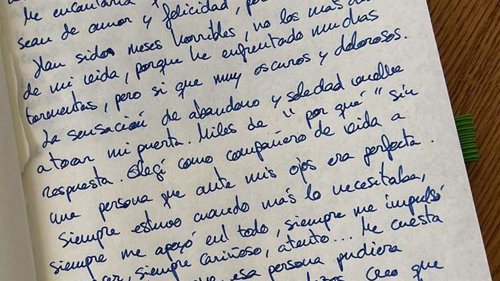 Me encantaría
sean de amor y felicidad,
Han sido meses horribles, no los más
de mi vida, porque he enfrentado muchas
tormentas, pero si que muy oscuros y dolorosos.
La sensación de abandono y soledad vuelve
a tocar mi puerta. Miles de "por qué" sin
respuesta. Elegí como compañero de vida a
una persona que ante mis ojos era perfecta.
Siempre estuvo cuando más lo necesitaba,
siempre me apoyó en todo, siempre me impulsó
siempre cariñoso, atento... Me cuesta
esa persona pudiera
creo que